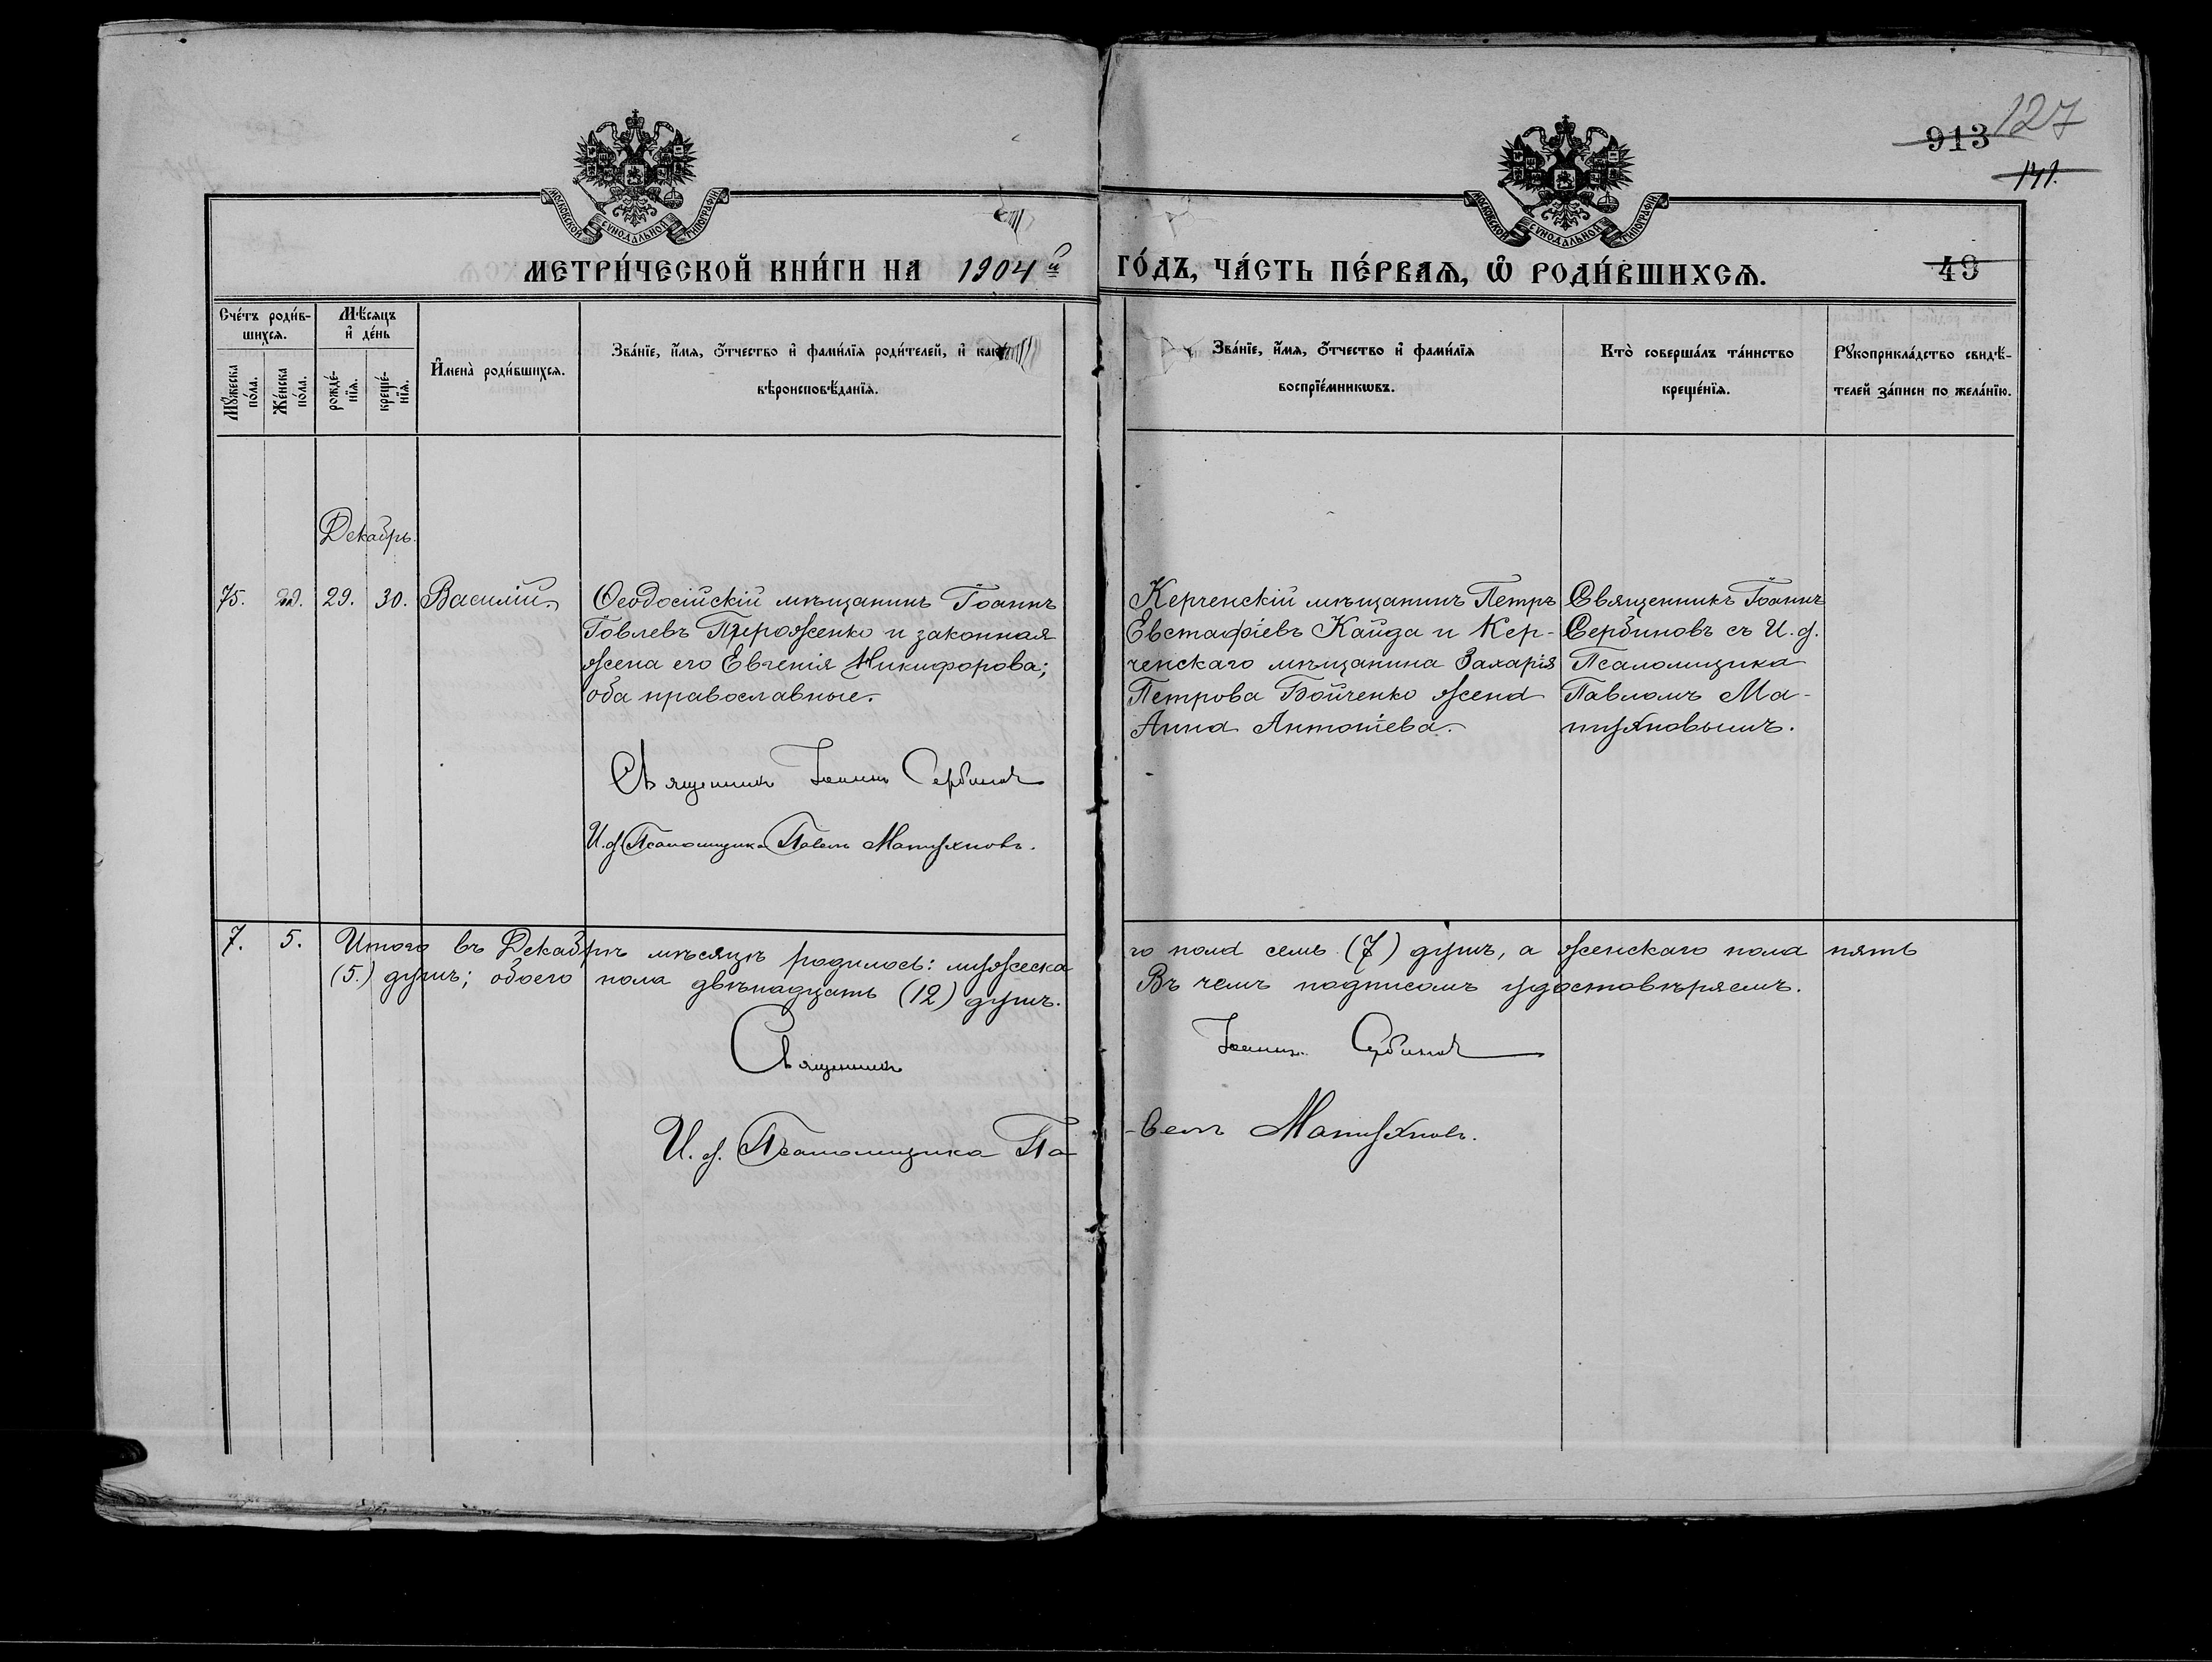 127
913
141.
МОСКОВСКОЙ СѴНОДАЛЬНОЙ ТИПОГРАФІИ
МОСКОВСКОЙ СѴНОДАЛЬНОЙ ТИПОГРАФІИ
МЕТРИ́ЧЕСКОЙ КНИ́ГИ НА 1904й ГО́ДЪ, ЧА́СТЬ ПЕ́РВАѦ, Ѽ РОДИ́ВШИХСѦ.
49
Сче́тъ роди́в-
шихсѧ.
Мꙋ́жеска по́ла.
Же́нска по́ла.
Мѣ́сѧцъ
и҆ де́нь
рожде́-нїѧ.
креще́-нїѧ.
И҆мена̀ роди́вшихсѧ.
Зва́нїе, и҆́мѧ, ѻ҆́тчество и҆ фами́лїѧ роди́телей, и҆ како́
вѣроисповѣ́данїѧ.
Зва́нїе, и҆́мѧ, ѻ҆́тчество и҆ фами́лїѧ
воспрїе́мникѡвъ.
Кто̀ соверша́лъ та́инство
креще́нїѧ.
Рꙋкоприкла́дство свидѣ́-
телей за́писи по жела́нїю.
Декабрь.
75. 29. 30. Василій.
Ѳеодосійскій мѣщанинъ Іоаннъ
Іовлевъ Пироженко и законная
жена его Евгенія Никифорова;
оба православные.
Священникъ Іоаннъ Сербиновъ
И. д. Псаломщика Павелъ Матужновъ.
Керченскій мѣщанинъ Петръ
Евстафіевъ Кайда и Кер-
ченскаго мѣщанина Захарія
Петрова Бойченко жена
Анна Антоніева.
Священникъ Іоаннъ
Сербиновъ съ И. д.
Псаломщика
Павломъ Ма-
тужновымъ.
7. 5. Итого въ Декабрѣ мѣсяцѣ родилось: мужеска
го пола семь (7) душъ, а женскаго пола пять
(5.) душъ; обоего пола двѣнадцать (12) душъ.
Въ чемъ подписомъ удостовѣряемъ.
Священникъ Іоаннъ Сербиновъ
И. д. Псаломщика Па-
-велъ Матужновъ.